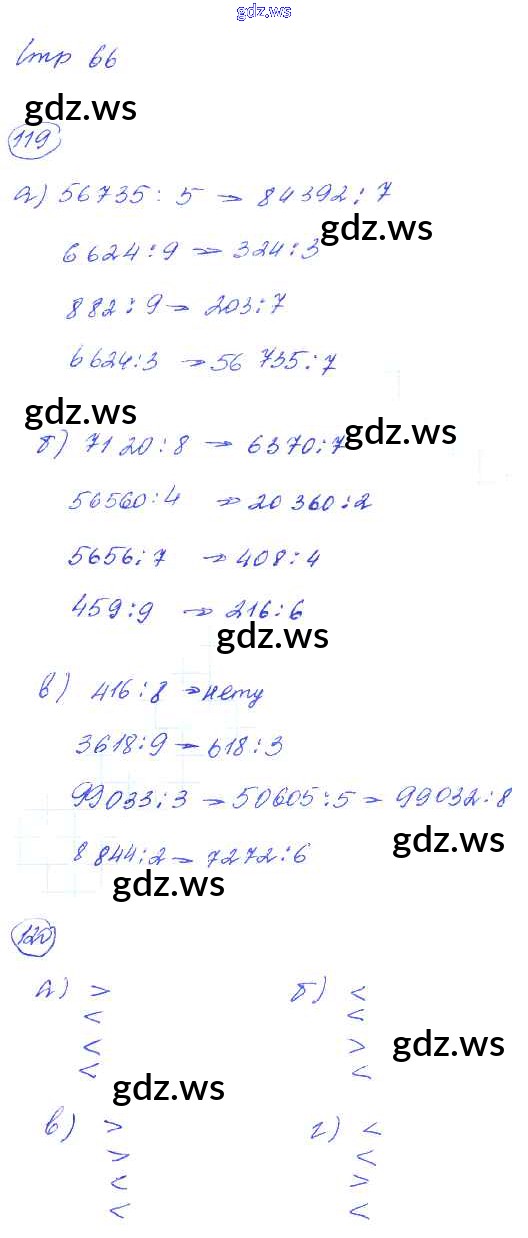 gdz.ws
Стр 66
gdz.ws
119
а) 56735 : 5 → 84392 : 7
gdz.ws
6624 : 9 → 324 : 3
882 : 9 → 203 : 7
6624 : 3 → 56 735 : 7
gdz.ws
gdz.ws
б) 7120 : 8 → 6370 : 7
56560 : 4 → 20 360 : 2
5656 : 7 → 408 : 4
459 : 9 → 216 : 6
gdz.ws
в) 416 : 8 → нету
3618 : 9 → 618 : 3
99033 : 3 → 50605 : 5 → 99032 : 8
gdz.ws
8 844 : 2 → 7272 : 6
gdz.ws
120
а) > б) <
< <
< >
gdz.ws
< <
gdz.ws
в) > г) <
> <
< >
< <